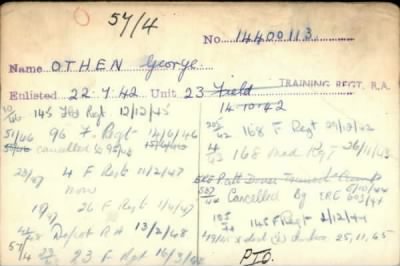 57/4
No. 14400113
Name OTHEN George.
Enlisted 22.7.42 Unit 23 Field TRAINING REGT. R.A.
14.10.42
145 Fld Regt 12/12/45
51/46 96 F. Regt 14/6/46
cancelled 95/46
23/47 4 F Regt 11/2/47
now
19/47 26 F Regt 1/4/47
Depot RA 13/2/48
57/4 23 F Regt 16/3/48
168 F Regt 29/12/42
168 Med Rgt 26/11/43
Cancelled by ERE
145 F Regt 2/12/44
25,11,45
PTO.